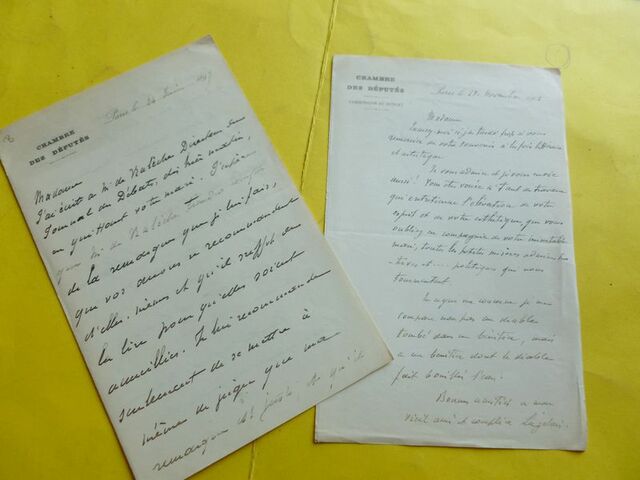 CHAMBRE
DES DÉPUTÉS
Paris le 24 Juin
Madame
J'ai écrit à M. de Nalèche Directeur du
Journal des Débats, dès hier matin,
en quittant votre mari. J'espère
que M. de Nalèche tiendra compte
de la remarque que je lui fais,
que vos œuvres se recommandent
d'elles-mêmes et qu'il suffit de
les lire pour qu'elles soient
accueillies. Je lui recommande
seulement de se mettre à
même de juger que ma
remarque est juste, et qu'il
CHAMBRE
DES DÉPUTÉS
COMMISSION DU BUDGET
Paris le 29 Novembre
Madame
à vous
remercier de votre souvenir à la fois littéraire
et artistique.
Je vous admire et je vous envie
aussi! Vous êtes vouée à tant de travaux
qui entretiennent l'élévation de votre
esprit et de votre esthétique, que vous
oubliez en compagnie de votre
mari, toutes les petites misères
et politiques qui nous
tourmentent.
En ce qui me concerne je me
compare non pas au diable
tombé dans un bénitier, mais
à un bénitier dont le diable
fait bouillir l'eau.
Bonnes amitiés à mon
vieil ami et complice